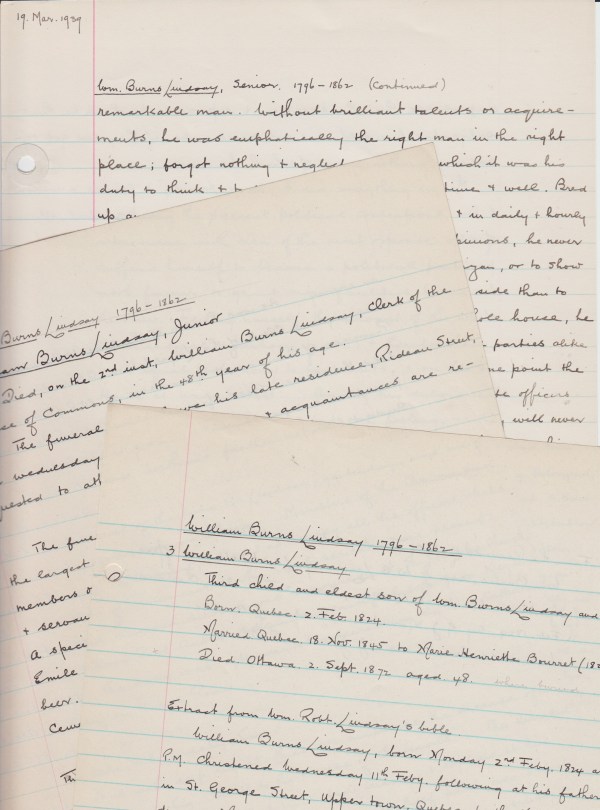 19. Mar. 1939
Wm. Burns Lindsay, Senior. 1796-1862 (continued)
remarkable man. Without brilliant talents or acquire-
ments, he was emphatically the right man in the right
place; forgot nothing + neglec which it was his
duty to think + time + well. Bred
up + in daily + hourly
pinions, he never
or to show
side than to
house, he
parties alike
point the
officers
, will never
Burns Lindsay 1796-1862
Burns Lindsay, Junior
Died, on the 2nd inst, William Burns Lindsay, Clerk of the
of Commons, in the 48th year of his age.
The funeral his late residence, Rideau Street,
Wednesday + acquaintances are re-
quested to
The fune
the largest
members o
+ servan
A speci
Emile
been
Ceme
Th
William Burns Lindsay 1796-1862
3 William Burns Lindsay
Third child and eldest son of Wm. Burns Lindsay and
Born. Quebec. 2. Feb. 1824.
Married Quebec. 18. Nov. 1845 to Marie Henriette Bourret (182
Died. Ottawa. 2. Sept. 1872 aged 48.
Extract from Wm. Robt. Lindsay's bible
William Burns Lindsay, born Monday 2nd Feby. 1824 a
P.M. Christened Wednesday 11th Feby. following at his father
in St. George Street, Upper town. Quebec